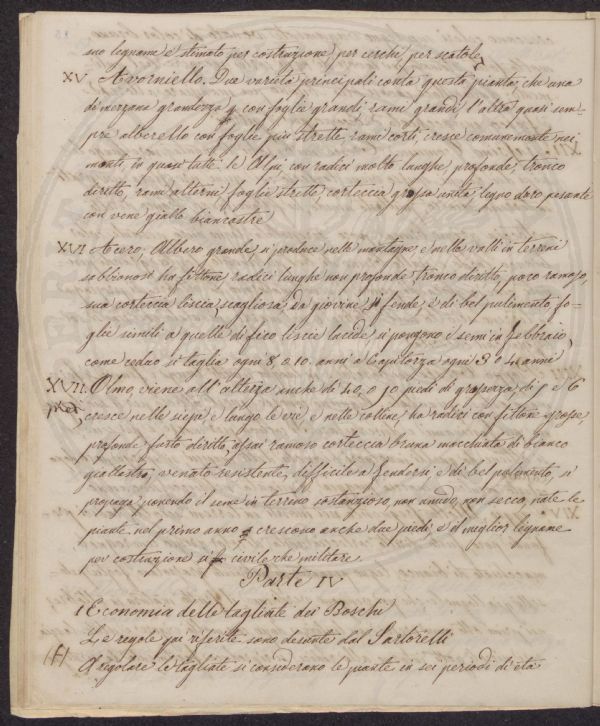 suo legname è stimato per costruzione, per cerchi, per scatole,
XV Avorniello. Due varietà principali conta questa pianta, che una
di mezzana grandezza con foglie grandi, rami grandi, l'altra quasi sem-
pre alberello con foglie più strette rami corti, cresce comunemente nei
monti, in quasi tutte le Alpi, con radici molto lunghe, profonde, tronco
diritto, rami alterni, foglie strette, corteccia grossa unita, legno duro pesante
con vene giallo biancastre
XVI Acero, Albero grande, si produce nelle montagne, e nelle valli in terreni
sabbionosi ha fittone radici lunghe non profonde, tronco diritto, poco ramoso,
sua corteccia liscia, scagliosa, da giovine si fende, è di bel pulimento fo-
glie simili a quelle di fico liscie lucide, si pongono i semi in Febbraio,
come ceduo si taglia ogni 8, o 10. anni a Capitozza ogni 3 o 4 anni
XVII. Olmo, viene all'altezza anche di 40, o 50 piedi di grossezza, di 5 e 6
cresce nelle siepi e lungo le vie e nelle colline, ha radici con fittone grosse,
profonde fusto diritto, assai ramoso corteccia bruna macchiata di bianco
giallastro, venato resistente, difficile a fendersi, e di bel pulimento, si
propaga ponendo il seme in terrino sostanzioso, non umido, non secco, tale le
piante nel primo anno crescono anche due piedi, è il miglior legname
per costruzione sì civile che militare.
Parte IV
1 Economia delle tagliate dei Boschi
Le regole qui riferite sono desunte dal Sartorelli
A regolare le tagliate si considerano le piante in sei periodi di età